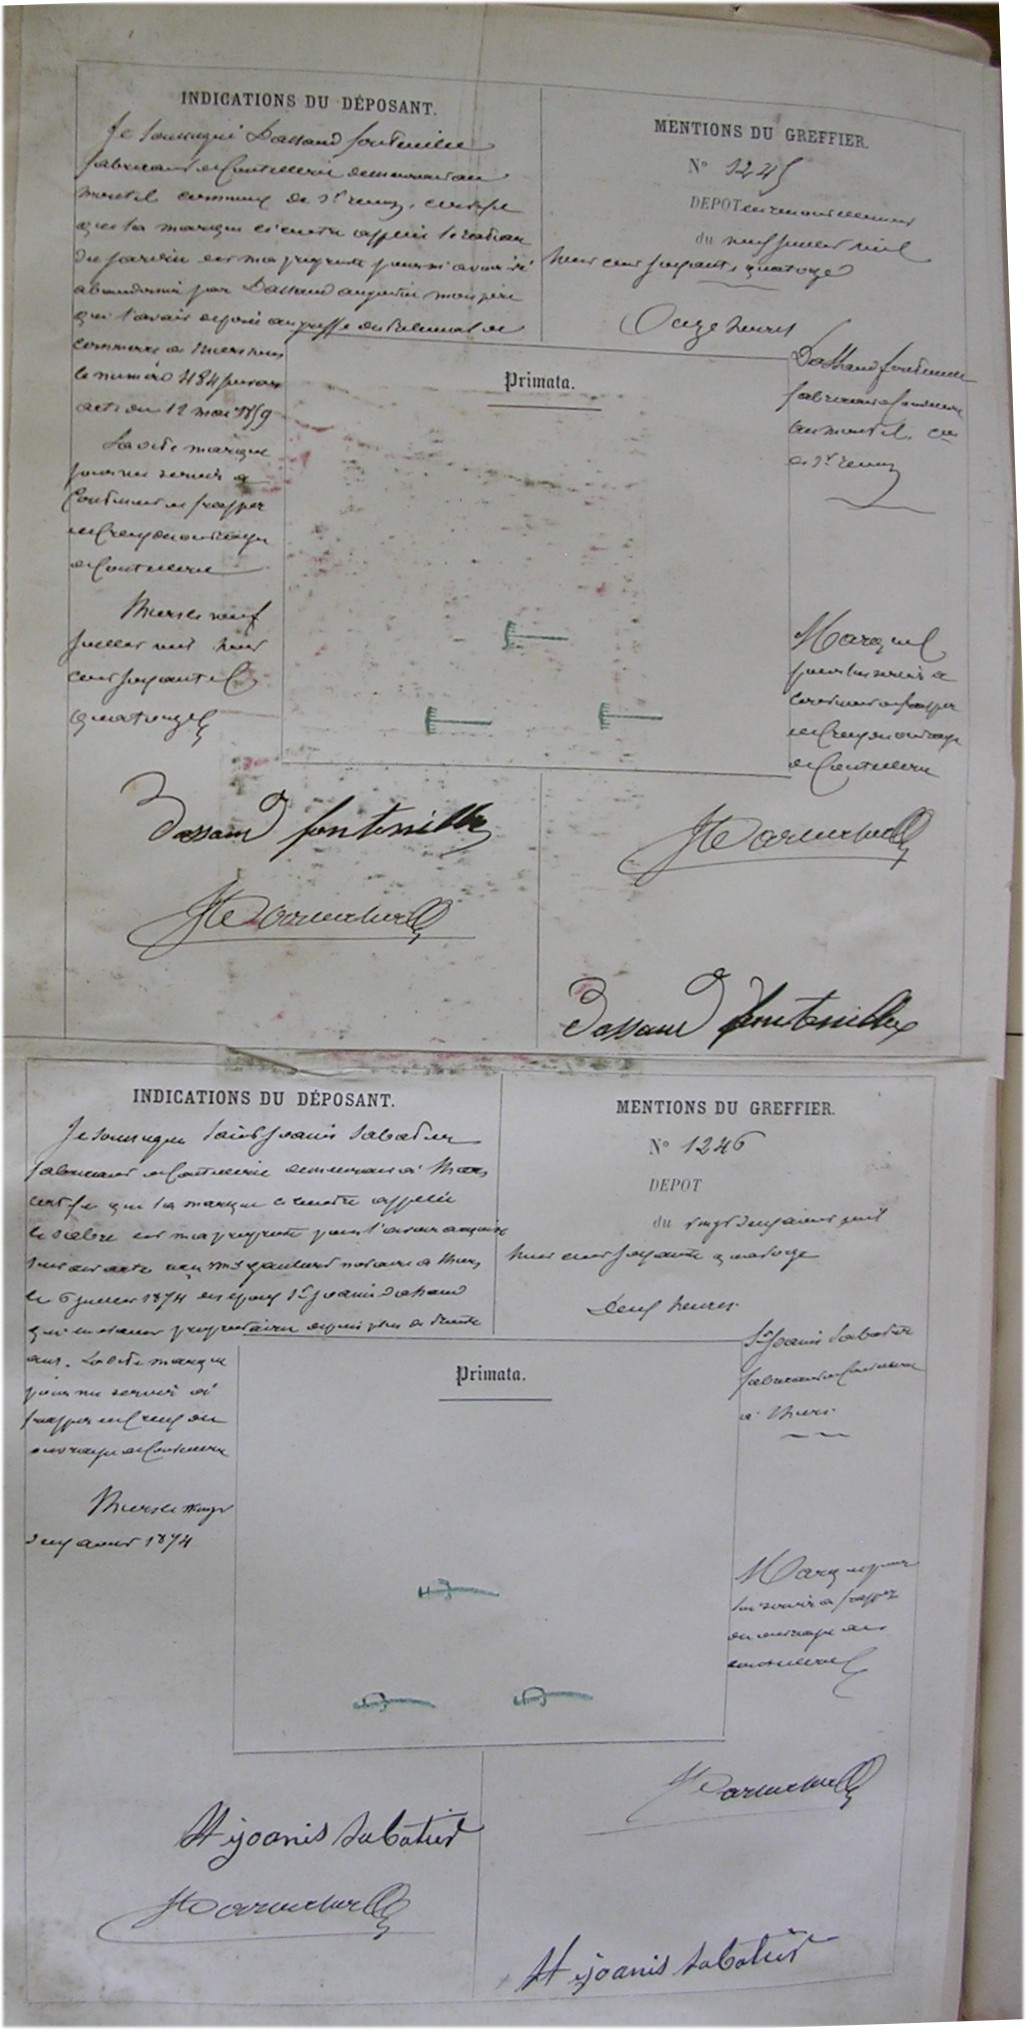 INDICATIONS DU DÉPOSANT.
Je soussigné Dassaud fontenille
fabricant de Coutellerie demeurant au
montel commune de St remy, certifie
que la marque ci contre appelée le rateau
du jardin est ma propriété pour m'avoir été
abandonnée par Dassaud augustin mon père
qui l'avait déposé au greffe du Tribunal de
commerce de Thiers sous
le numéro 484 suivant
acte du 12 mai 1859
Ladite marque
pour me servir à
Continuer de frapper
en Creux mon ouvrage
de Coutellerie
Thiers le neuf
juillet mil huit
cent soixante et
quatorze
MENTIONS DU GREFFIER.
N° 1245
DEPOT en renouvellement
du neuf juillet mil
huit cent soixante quatorze
Onze heures
Primata.
Dassaud fontenille
fabricant de Coutellerie
au montel, cne
de St remy
Marque
pour lui servir à
continuer de frapper
en Creux son ouvrage
de Coutellerie
Dassaud fontenille
Dassaud fontenille
INDICATIONS DU DÉPOSANT.
Je soussigné Saint Joanis Sabatier
fabricant de Coutellerie demeurant à Thiers
certifie que la marque ci contre appelée
le sabre est ma propriété pour l'avoir acquise
suivant acte reçu Me notaire à Thiers
le 6 juillet 1874 des époux St Joanis Dassaud
qui en étaient propriétaires depuis plus de trente
ans. Ladite marque
pour me servir à
frapper en Creux mon
ouvrage de Coutellerie
Thiers le vingt
deux août 1874
MENTIONS DU GREFFIER.
N° 1246
DEPOT
du vingt deux août mil
huit cent soixante quatorze
Deux heures
Primata.
St Joanis Sabatier
fabricant de Coutellerie
à Thiers
Marque pour
lui servir à frapper
son ouvrage de
coutellerie
St joanis Sabatier
St joanis Sabatier